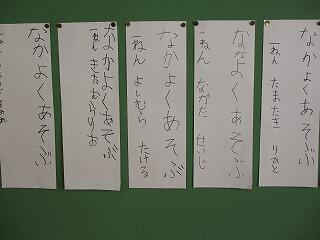 なかよくあそぶ
一ねん たまたき りひと
なかよくあそぶ
一ねん ながた せいじ
なかよくあそぶ
一ねん よしむら たける
なかよくあそぶ
一ねん きたむらりお
なかよくあそぶ